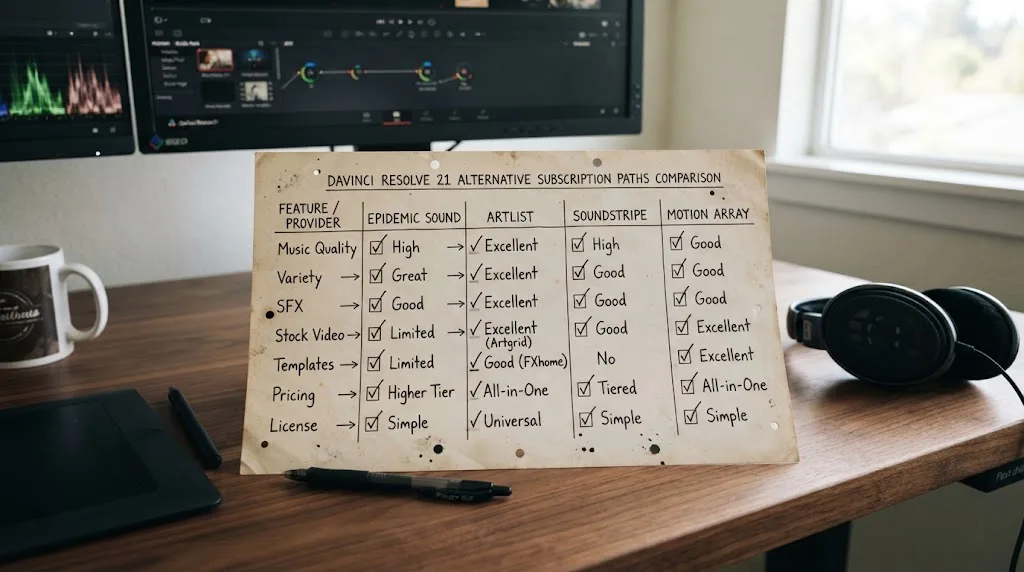 DAVINCI RESOLVE 21 ALTERNATIVE SUBSCRIPTION PATHS COMPARISON
FEATURE / PROVIDER EPIDEMIC SOUND ARTLIST SOUNDSTRIPE MOTION ARRAY
Music Quality ☑ High → ✓ Excellent ☑ High ☑ Good
Variety → ☑ Great → ✓ Excellent ☑ Good ☑ Good
SFX → ☑ Good → ✓ Excellent ☑ Good ☑ Good
Stock Video → ☑ Limited → ✓ Excellent (Artgrid) ☑ Good ☑ Excellent
Templates → ☑ Limited ✓ Good (FXhome) No ☑ Excellent
Pricing → ☑ Higher Tier ✓ All-in-One ☑ Tiered ☑ All-in-One
License → ☑ Simple ✓ Universal ☑ Simple ☑ Simple